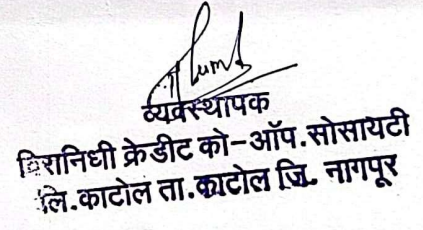 व्यवस्थापक
िरानिधी क्रेडीट को-ऑप.सोसायटी
लि.काटोल ता.काटोल जि. नागपूर